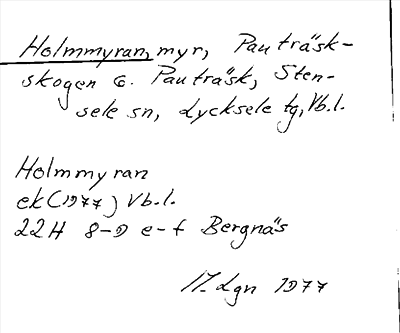 Holmmyran, myr, Pauträsk-
skogen G. Pauträsk, Sten-
sele sn, Lycksele tg, Vb.l.
Holmmyran
ek (1977) Vb.l.
22H 8-9 e-f Bergnäs
1977